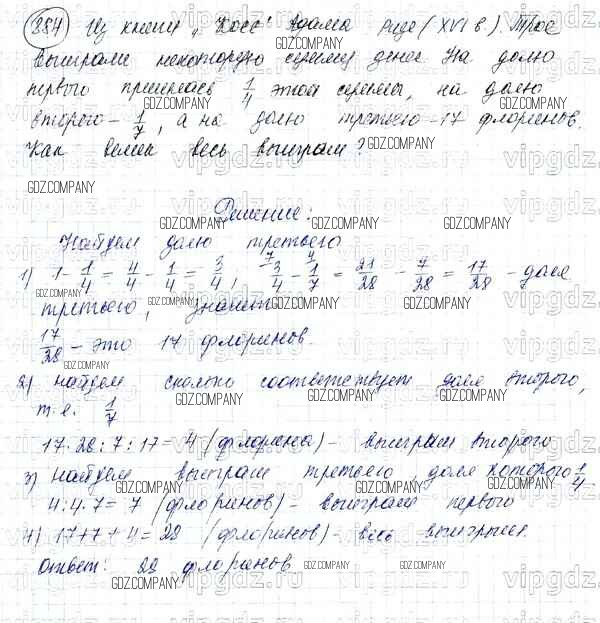 354) Из книги „Косс" Адама Ризе (XVI в.). Трое
выиграли некоторую сумму денег. На долю
первого пришлась 1/4 этой суммы, на долю
второго - 1/7, а на долю третьего - 17 флоринов.
Как велик весь выигрыш?
Решение:
Найдем долю третьего
1) 1 - 1/4 = 4/4 - 1/4 = 3/4; 3/4 - 1/7 = 21/28 - 7/28 = 17/28 - доля
третьего, значит
17/28 - это 17 флоринов.
2) Найдем сколько соответствует доля второго,
т.е. 1/7
17·28:7:17 = 4 (флорина) - выиграл второго
3) Найдем выиграш третьего, доля которого 1/4
4:4·7 = 7 (флоринов) - выиграш первого
4) 17+7+4 = 28 (флоринов) - весь выигрыш.
Ответ: 28 флоринов.
GDZ.COMPANY
vipgdz.ru